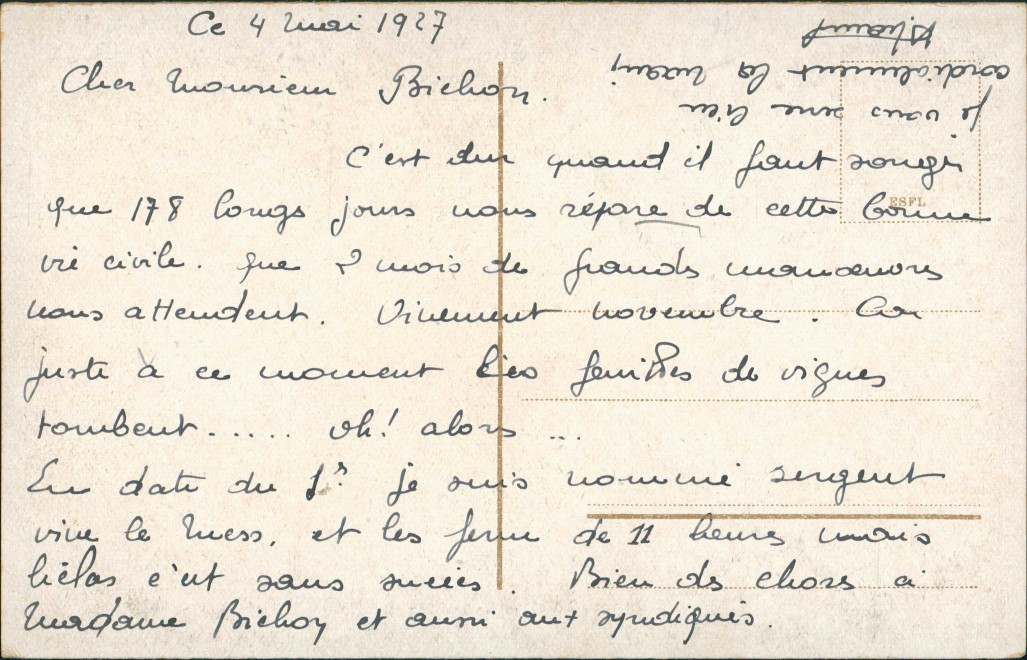 Ce 4 mai 1927
Cher Monsieur Bichon.
C'est dur quand il faut songer
que 178 longs jours nous sépare de cette bonne
vie civile. que 2 mois de grandes manoeuvres
nous attendent. Vivement novembre. Car
juste à ce moment les feuilles de vignes
tombent..... oh! alors ...
En date du 1er je suis nommé sergent
vive le mess. et les perm de 11 heures mais
hélas c'est sans succès. Bien des choses à
Madame Bichon et aussi aux syndiqués.
je vous serre bien
cordialement la main
ESFL